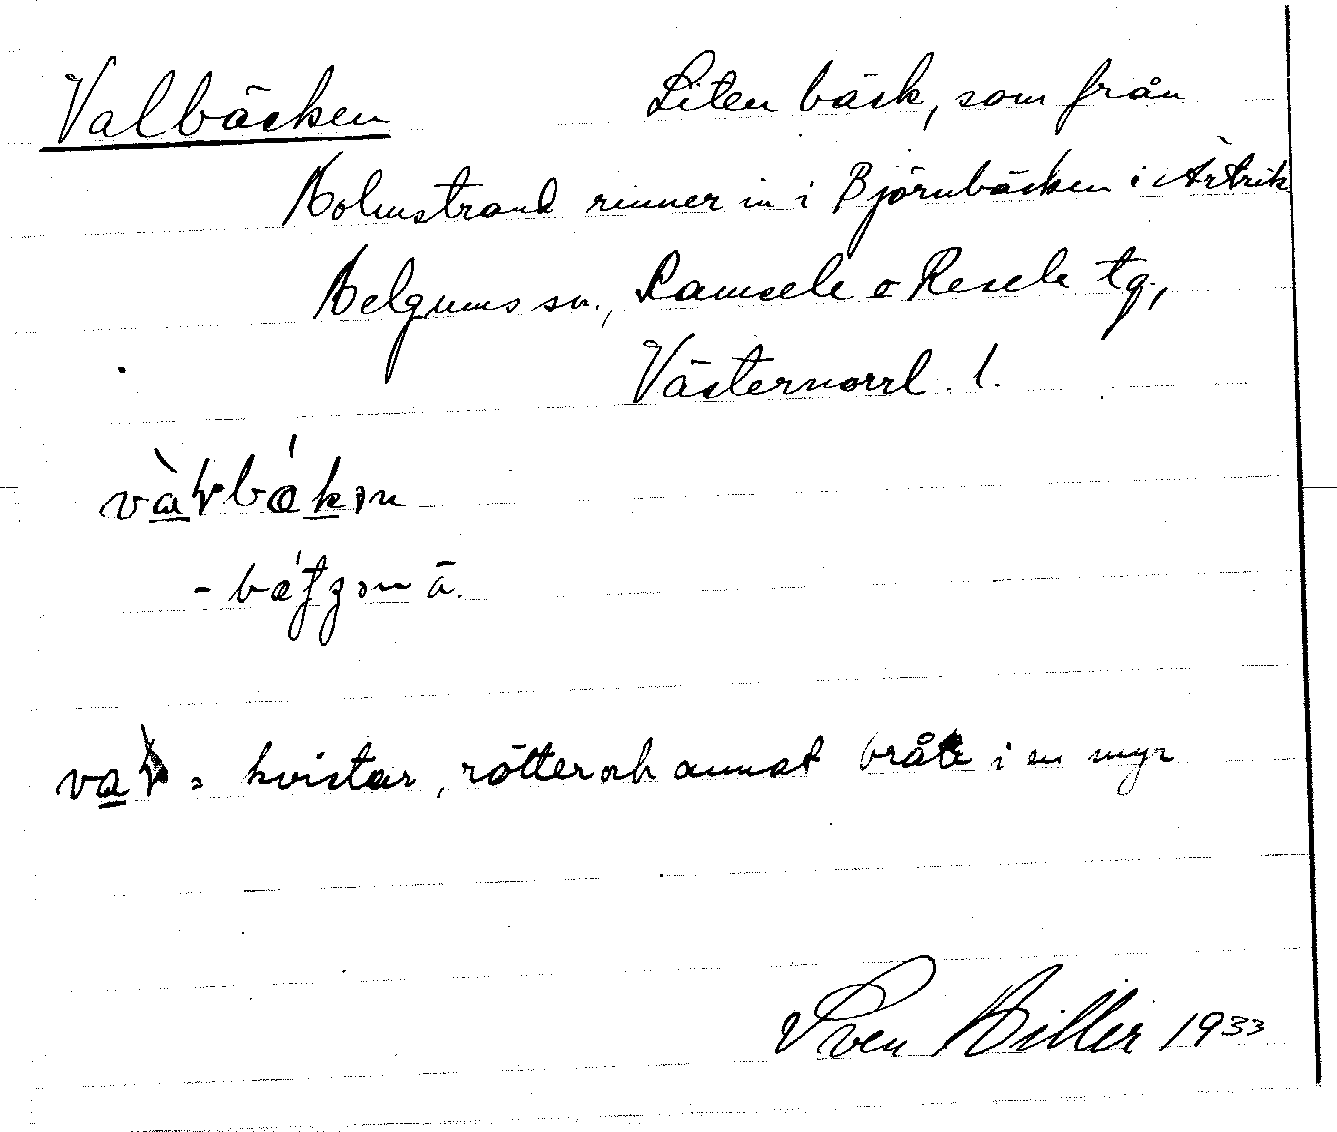 Valbäcken Liten bäck, som från
Holmstrand rinner in i Björnbäcken i Ärtrik
Helgums sn., Ramsele o Resele tg.,
Västernorrl. l.
kvistar, rötter och annat bråte i en myr
Sven Hiller 1933